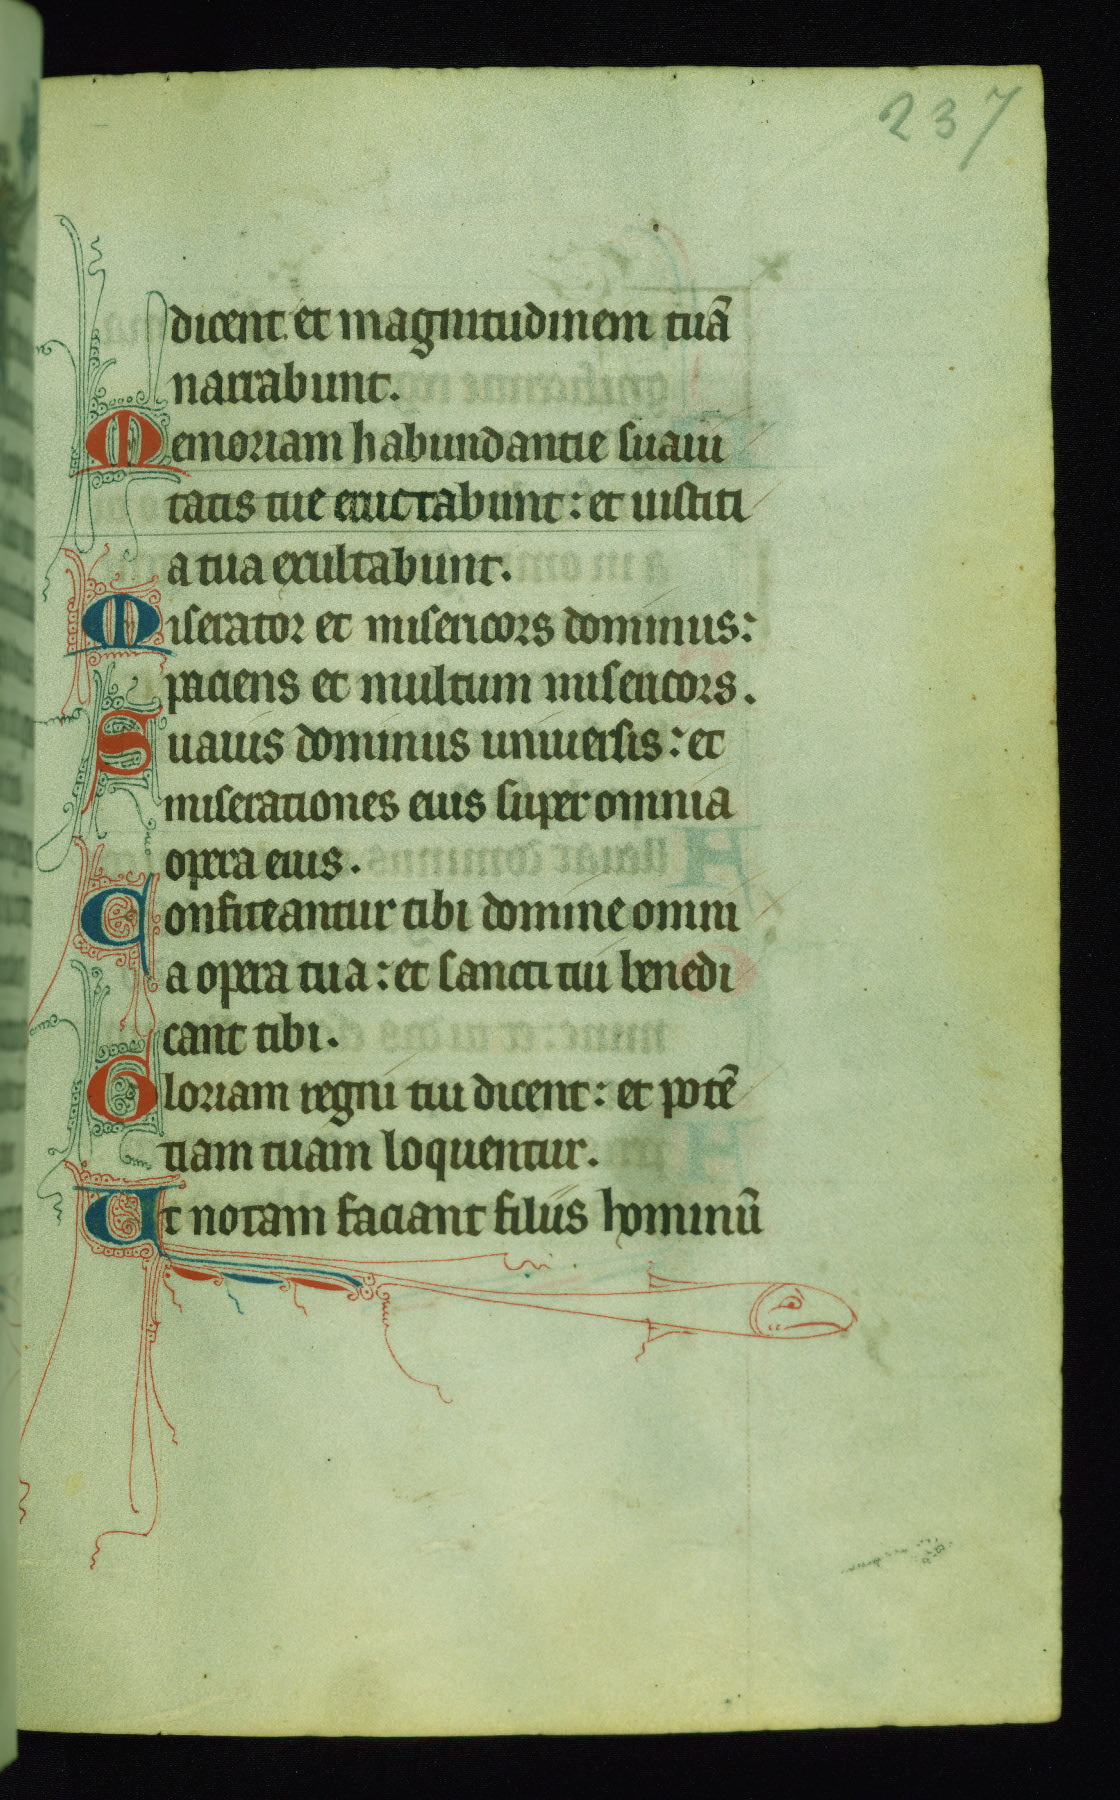 237
dicent. et magnitudinem tuā
narrabunt.
Memoriam habundantie suaui
tatis tue eructabunt: et iustiti
a tua exultabunt.
Miserator et misericors dominus:
paciens et multum misericors.
Suauis dominus uniuersis: et
miserationes eius super omnia
opera eius.
Confiteantur tibi domine omni
a opera tua: et sancti tui benedi
cant tibi.
Gloriam regni tui dicent: et potē
tiam tuam loquentur.
Ut notam faciant filiis hominū